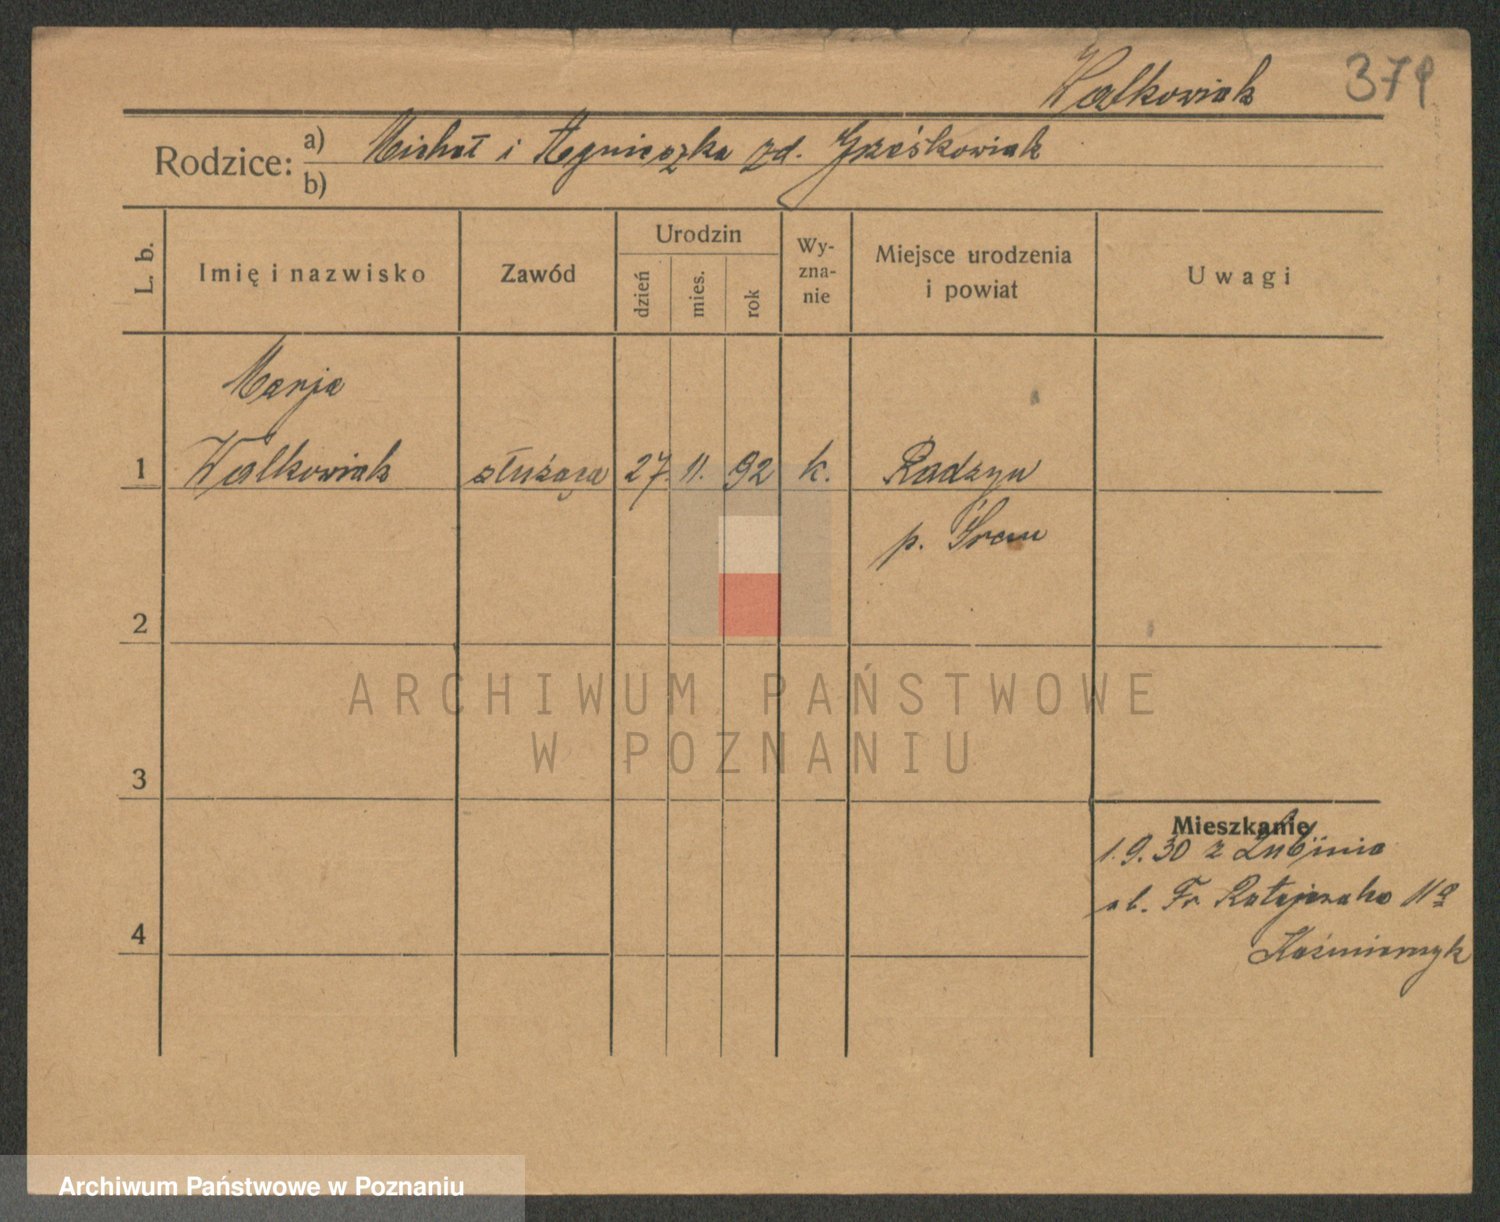 Walkowiak 379
Rodzice: a) Michał i Agnieszka zd. Grześkowiak
b)
L. b. Imię i nazwisko Zawód Urodzin dzień mies. rok Wy-zna-nie Miejsce urodzenia i powiat Uwagi
Marja
1 Walkowiak służąca 27. 11. 92 k. Radzyn
p. Śrem
2
ARCHIWUM PAŃSTWOWE
W POZNANIU
3
Mieszkanie
1.9.30 z Lubinia
ul. Fr. Ratajczaka 11a
4 Kaźmierczyk
Archiwum Państwowe w Poznaniu